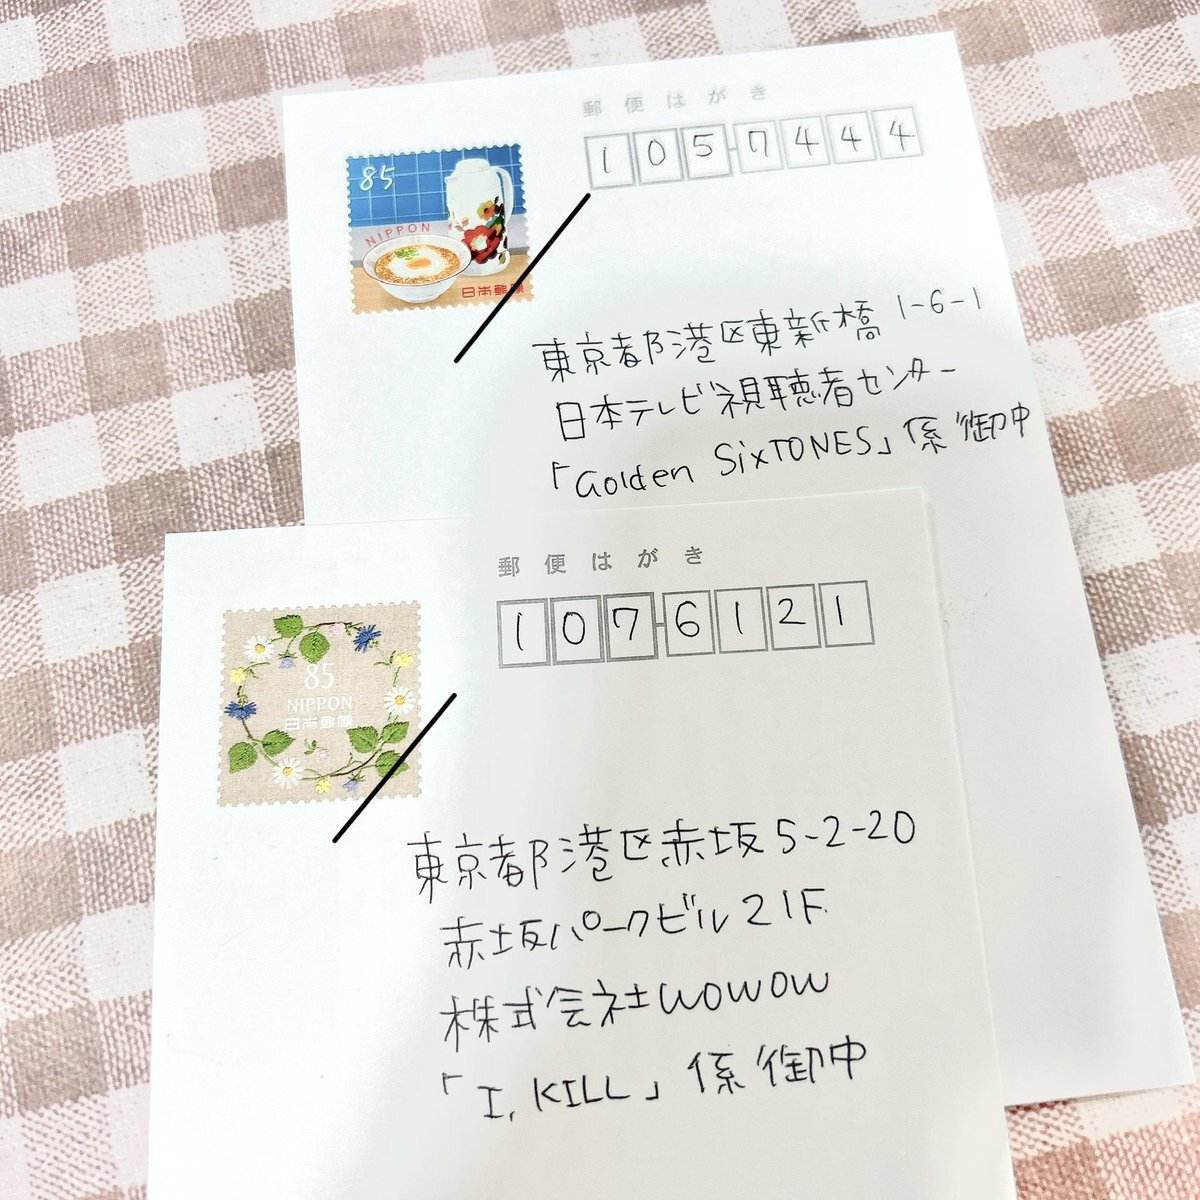 郵便はがき
105-7444
85
NIPPON
日本郵便
東京都港区東新橋1-6-1
日本テレビ視聴者センター
「Golden SixTONES」係 御中
郵便はがき
107-6121
85
NIPPON
日本郵便
東京都港区赤坂5-2-20
赤坂パークビル21F
株式会社WOWOW
「I, KILL」係 御中